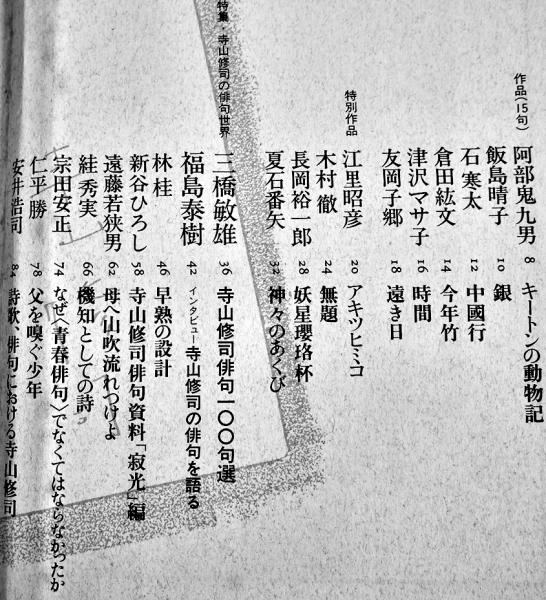 作品(15句)
阿部鬼九男 8 キートンの動物記
飯島晴子 10 銀
石寒太 12 中國行
倉田紘文 14 今年竹
津沢マサ子 16 時間
友岡子郷 18 遠き日
特別作品
江里昭彦 20 アキツヒミコ
木村徹 24 無題
長岡裕一郎 28 妖星瓔珞杯
夏石番矢 32 神々のあくび
特集・寺山修司の俳句世界
三橋敏雄 36 寺山修司俳句一〇〇句選
福島泰樹 42 インタビュー 寺山修司の俳句を語る
林桂 46 早熟の設計
新谷ひろし 58 寺山修司俳句資料「寂光」編
遠藤若狭男 62 母へ山吹流れつけよ
絓秀実 66 機知としての詩
宗田安正 74 なぜ〈青春俳句〉でなくてはならなかったか
仁平勝 78 父を嗅ぐ少年
安井浩司 84 詩歌、俳句における寺山修司